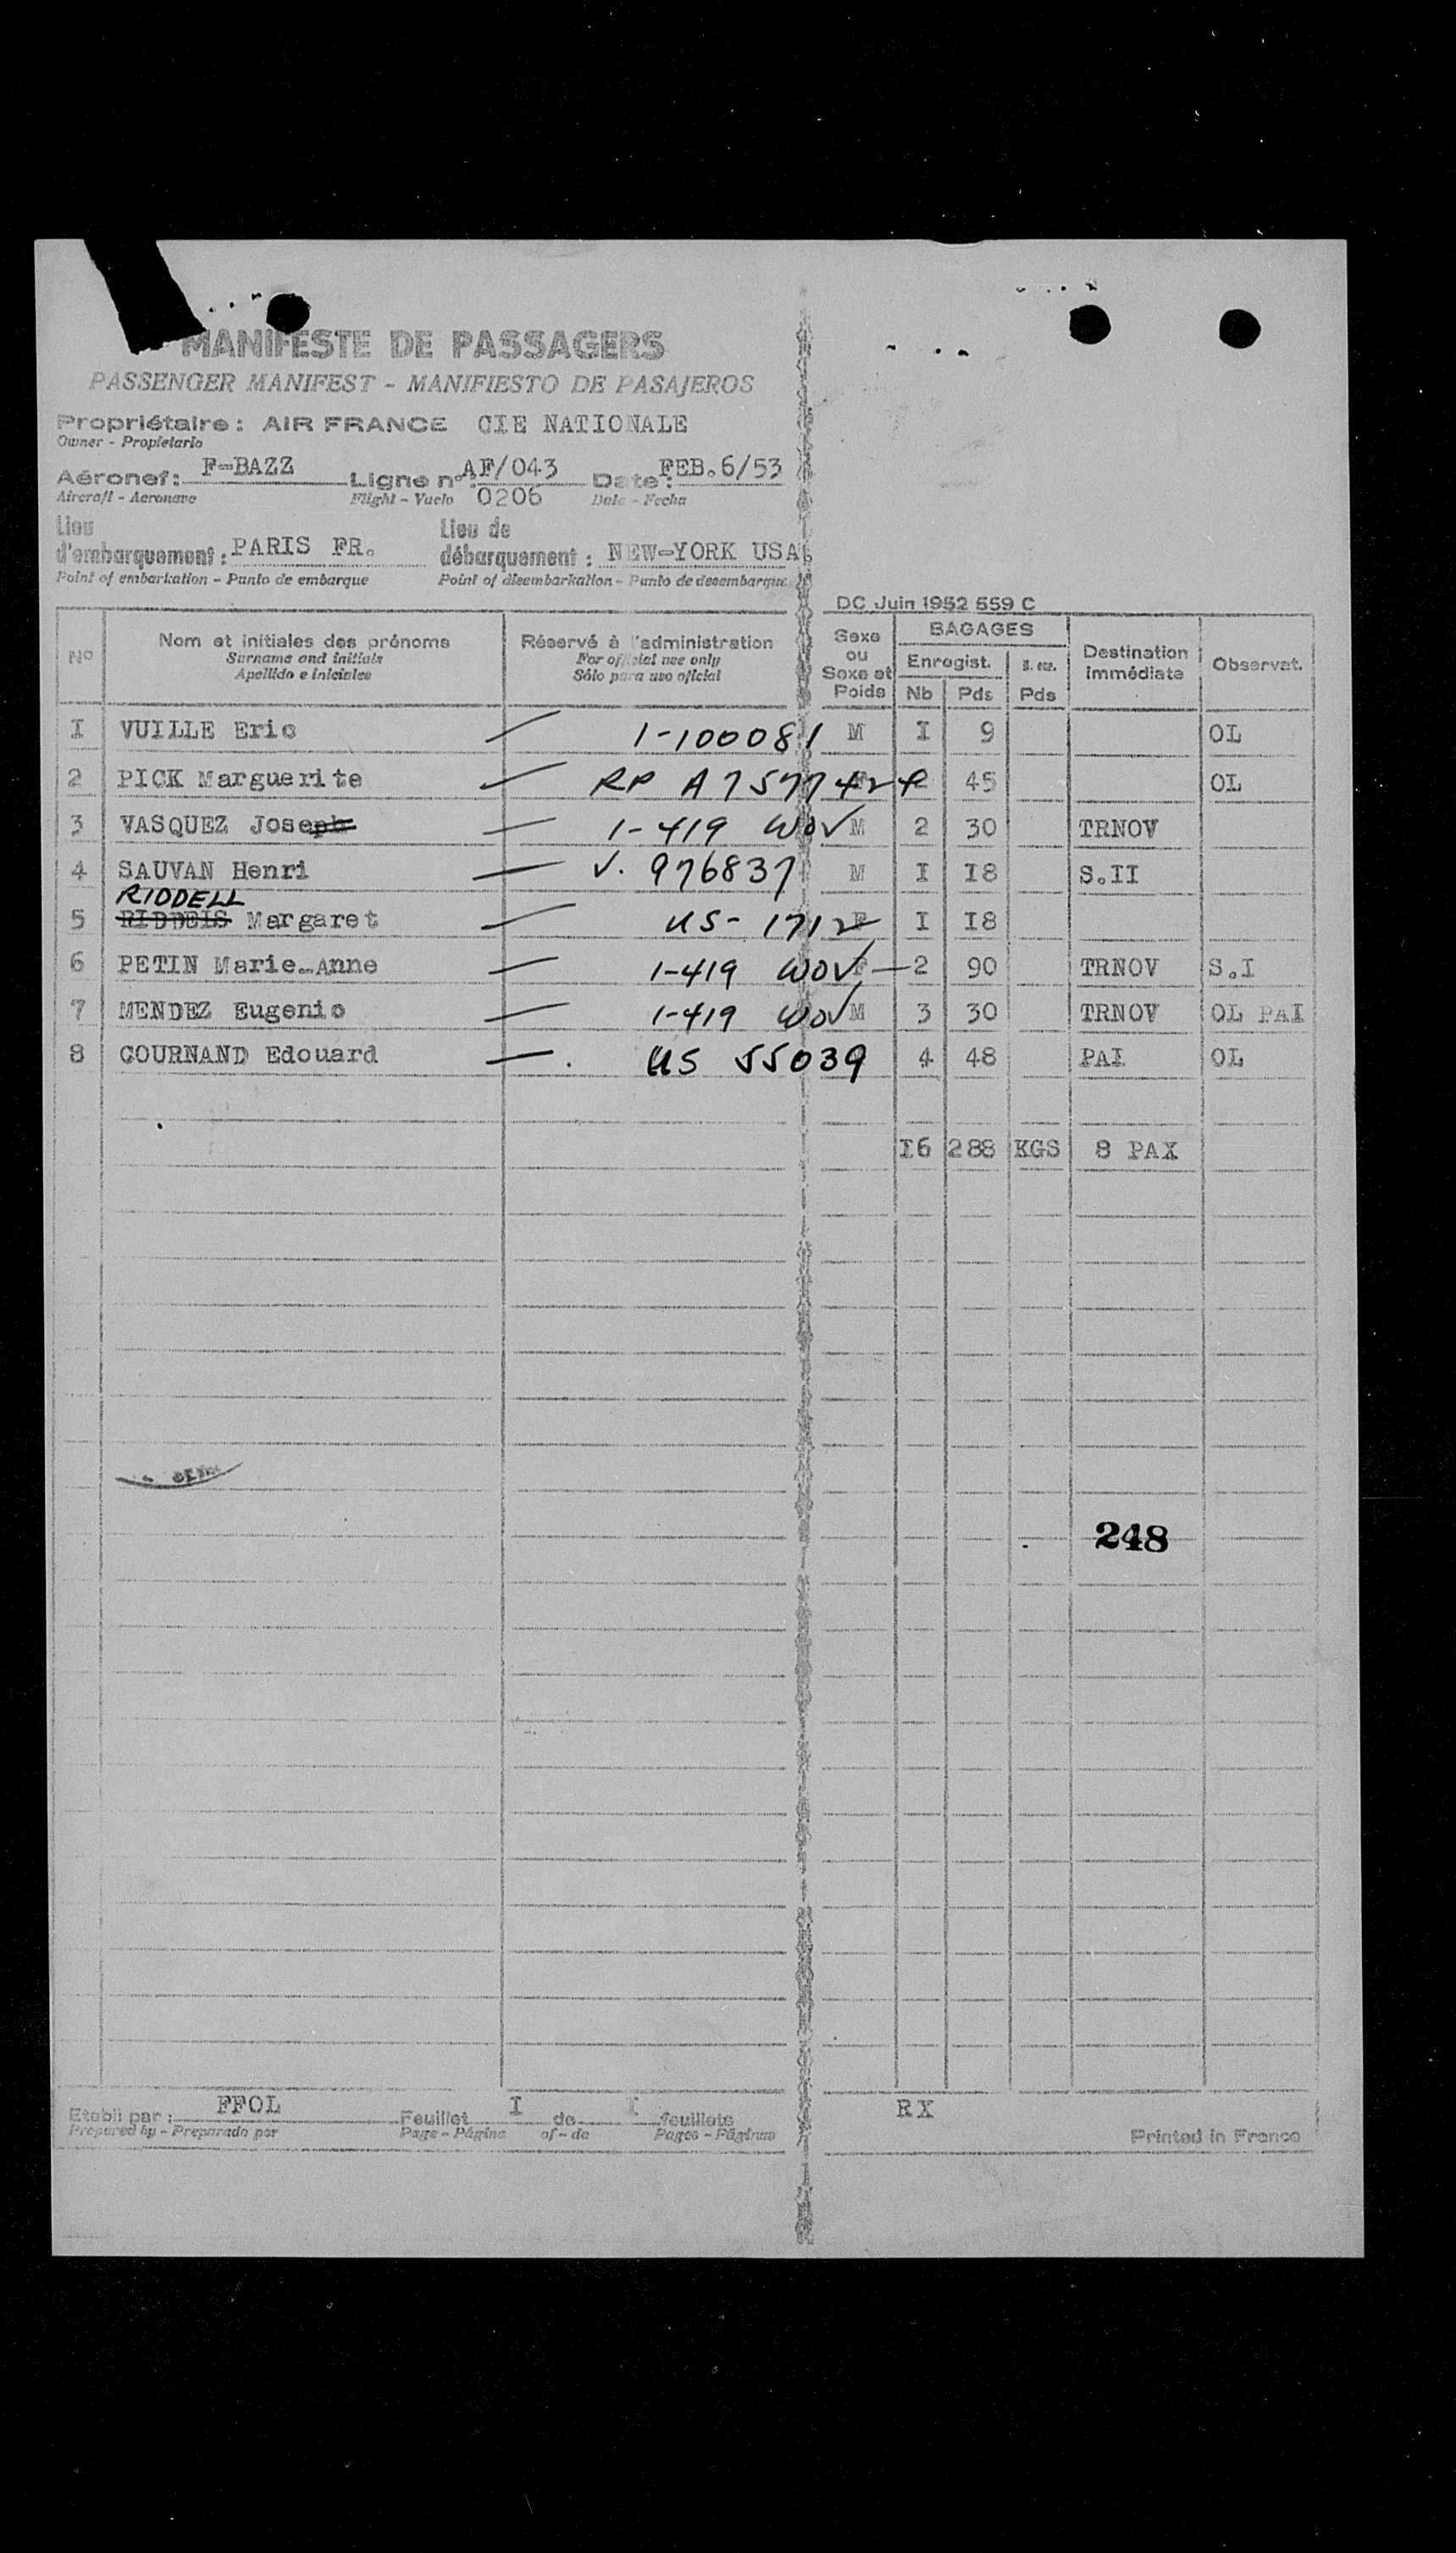 MANIFESTE DE PASSAGERS
PASSENGER MANIFEST - MANIFIESTO DE PASAJEROS
Propriétaire : AIR FRANCE CIE NATIONALE
Owner - Propietario
Aéronef : F-BAZZ Ligne n° : AF/043 Date : FEB.6/53
Aircraft - Aeronave Flight - Vuelo 0206 Date - Fecha
Lieu d'embarquement : PARIS FR. Lieu de débarquement : NEW-YORK USA
Point of embarkation - Punto de embarque Point of disembarkation - Punto de desembarque
DC Juin 1952 559 C
N° Nom et initiales des prénoms Réservé à l'administration Sexe ou Sexe et Poids BAGAGES Destination immédiate Observat.
Surname and initials For official use only Enregist.
Apellido e iniciales Sólo para uso oficial Nb Pds Pds
I VUILLE Eric 1-100081 M I 9 OL
2 PICK Marguerite RP A7577424 F 2 45 OL
3 VASQUEZ Joseph 1-419 WOV M 2 30 TRNOV
4 SAUVAN Henri V. 976837 M I I8 S.II
RIDDELL
5 RIDDEIS Margaret US-1712 F I I8
6 PETIN Marie-Anne 1-419 WOV F 2 90 TRNOV S.I
7 MENDEZ Eugenio 1-419 WOV M 3 30 TRNOV OL PAI
8 COURNAND Edouard US 55039 4 48 PAI OL
I6 288 KGS 8 PAX
248
Etabli par : FFOL Feuillet I de I feuillets RX
Prepared by - Preparado por Page - Página of - de Pages - Páginas Printed in France